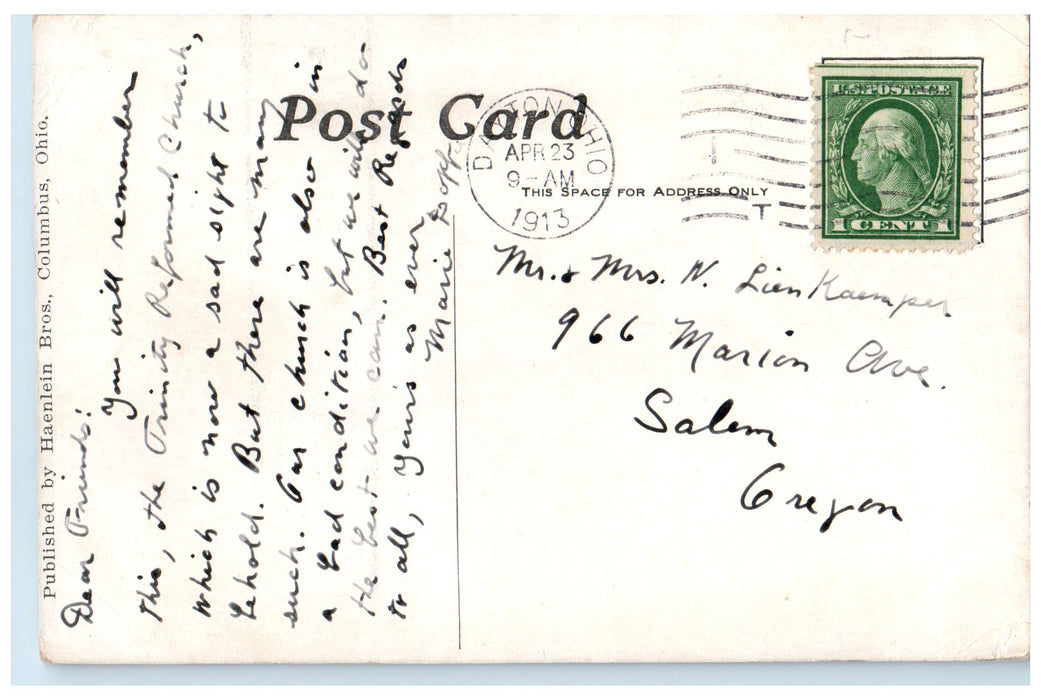 Published by Haenlein Bros., Columbus, Ohio.
Post Card
THIS SPACE FOR ADDRESS ONLY
DAYTON OHIO
APR 23
9-AM
1913
T
U.S. POSTAGE
1 CENT 1
Dear Friends:
You will remember
this, the Trinity Reformed Church,
which is now a sad sight to
behold. But there are many
such. Our church is also in
a bad condition, but we will do
the best we can. Best Regards
to all, Yours as ever
Marie
Mr. & Mrs. N. Lienkaemper
966 Marion Ave.
Salem
Oregon